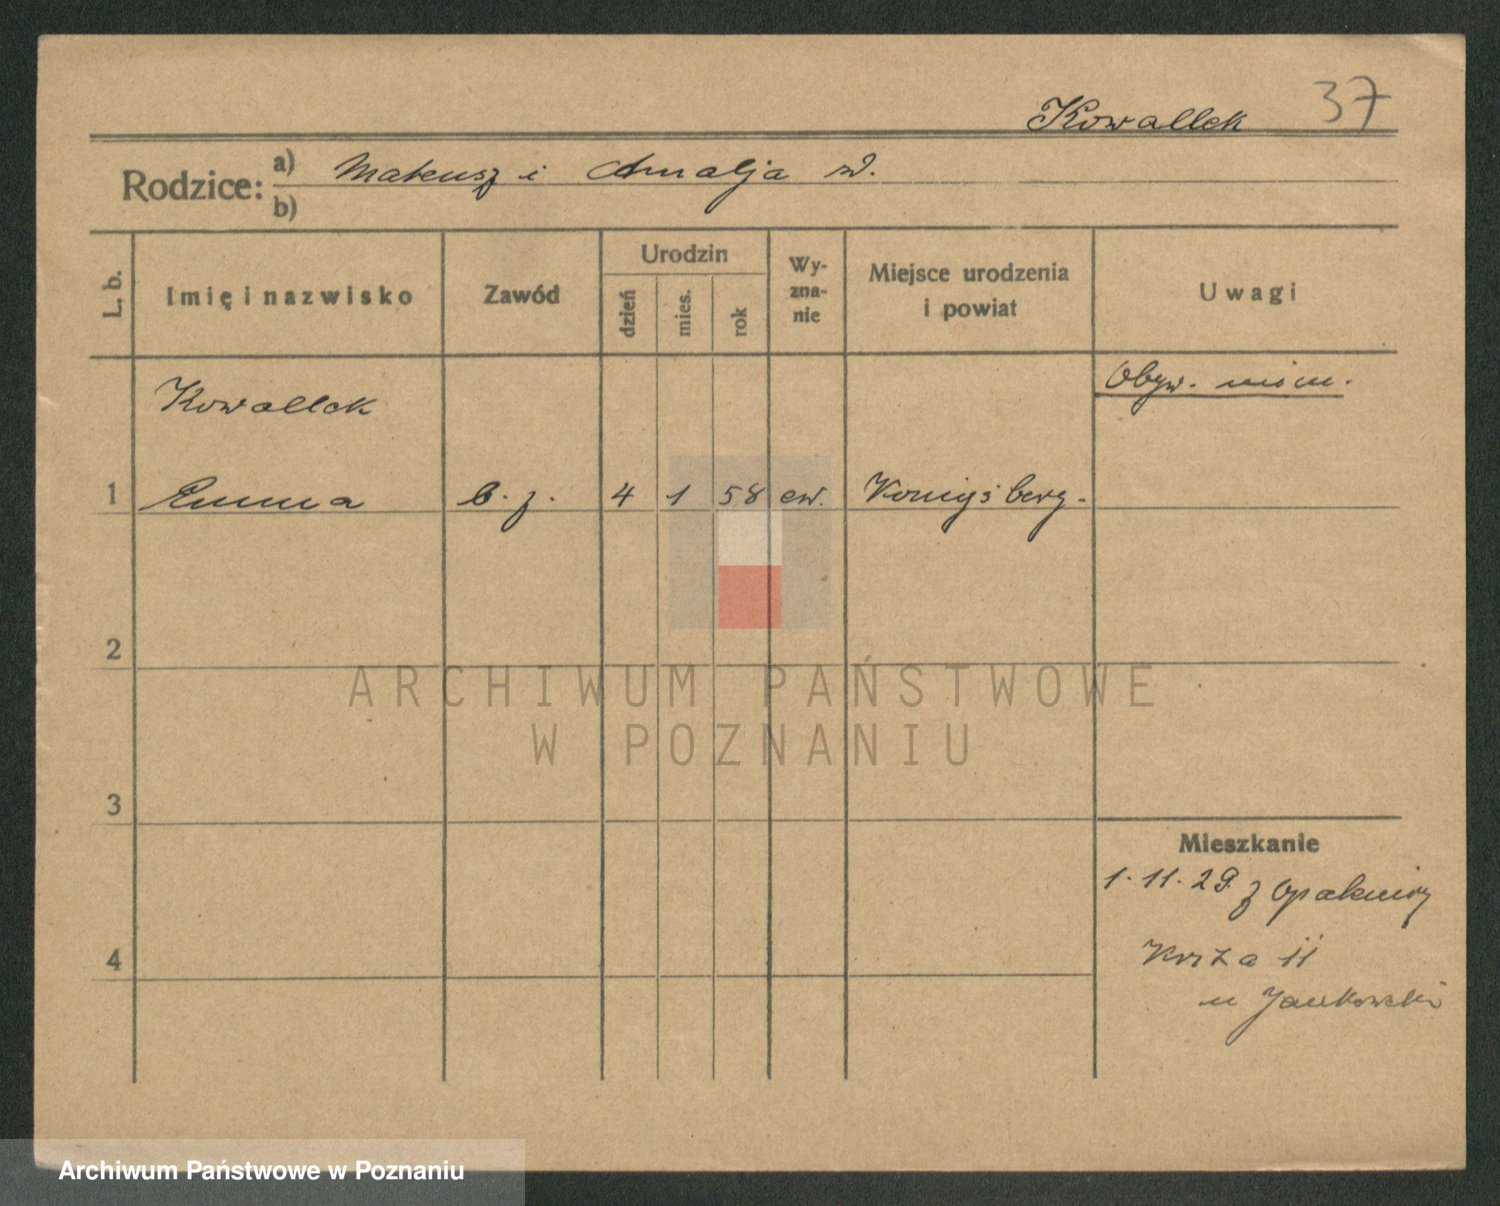 Kowallek 37
Rodzice: a) Mateusz i Amalja
b)
L. b. Imię i nazwisko Zawód Urodzin dzień mies. rok Wy-zna-nie Miejsce urodzenia i powiat Uwagi
Kowallek Obyw. niem.
1 Emma b. z. 4 1 58 ew. Königsberg.
2
ARCHIWUM PAŃSTWOWE
W POZNANIU
3
Mieszkanie
1. 11. 29. z Opalenicy
4
11
u Jankowski
Archiwum Państwowe w Poznaniu